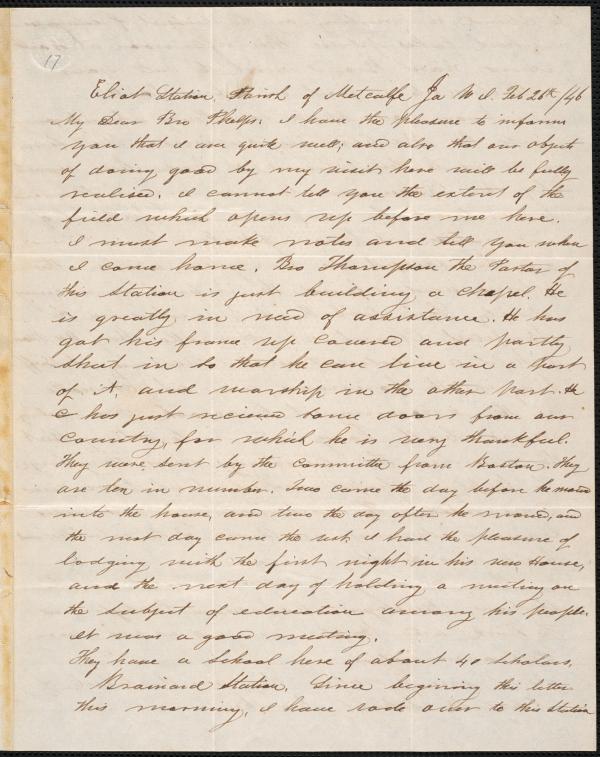 17
Eliot Station, Parish of Metcalfe Ja W I. Feb 26th/46
My Dear Bro Phelps; I have the pleasure to inform
you that I am quite well; and also that our objects
of doing good by my visit here will be fully
realised. I cannot tell you the extent of the
field which opens up before me here.
I must make notes and tell you when
I come home. Bro Thompson the Pastor of
this station is just building a chapel. He
is greatly in need of assistance. He has
got his frame up covered and partly
shut in so that he can live in a part
of it, and worship in the other part. He
has just recieved some doors from our
country, for which he is very thankful.
They were sent by the committee from Boston. They
are ten in number. Two came the day before he moved
into the house, and two the day after he moved, and
the next day came the rest. I had the pleasure of
lodging with the first night in his new House,
and the next day of holding a meeting on
the subject of education among his people.
It was a good meeting.
They have a School here of about 40 scholars.
Brainard Station. Since begining this letter
this morning, I have rode over to this Station